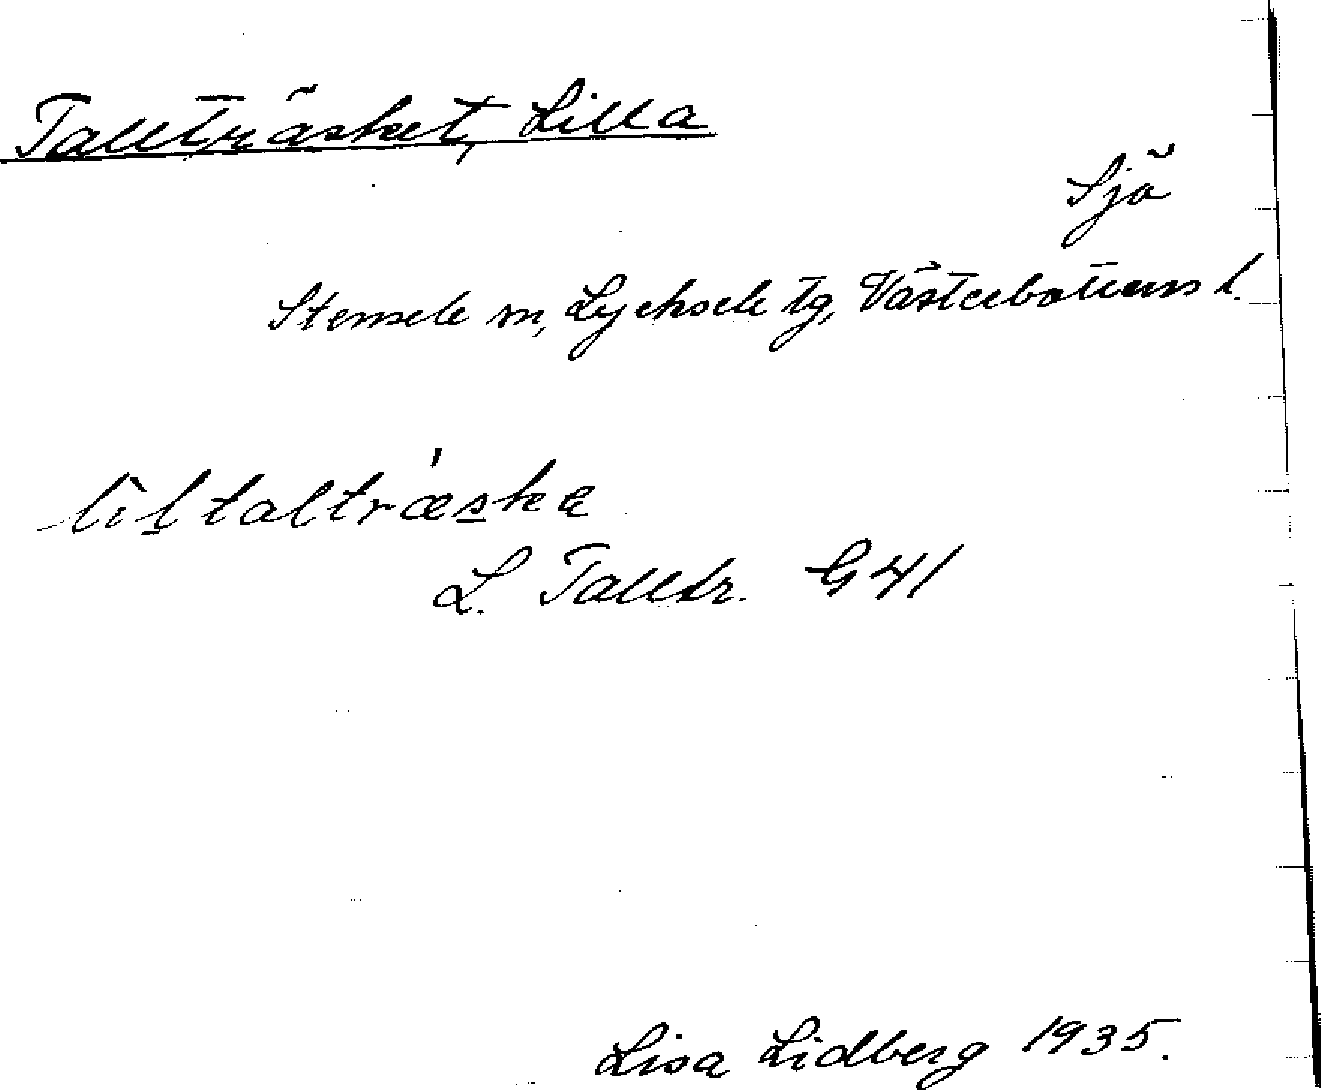 Tallträsket, Lilla
Sjö
Stensele sn, Lycksele tg, Västerbottens l.
lil̀taltræ̀skɐ
L.Талltr. G 41
Lisa Lidberg 1935.